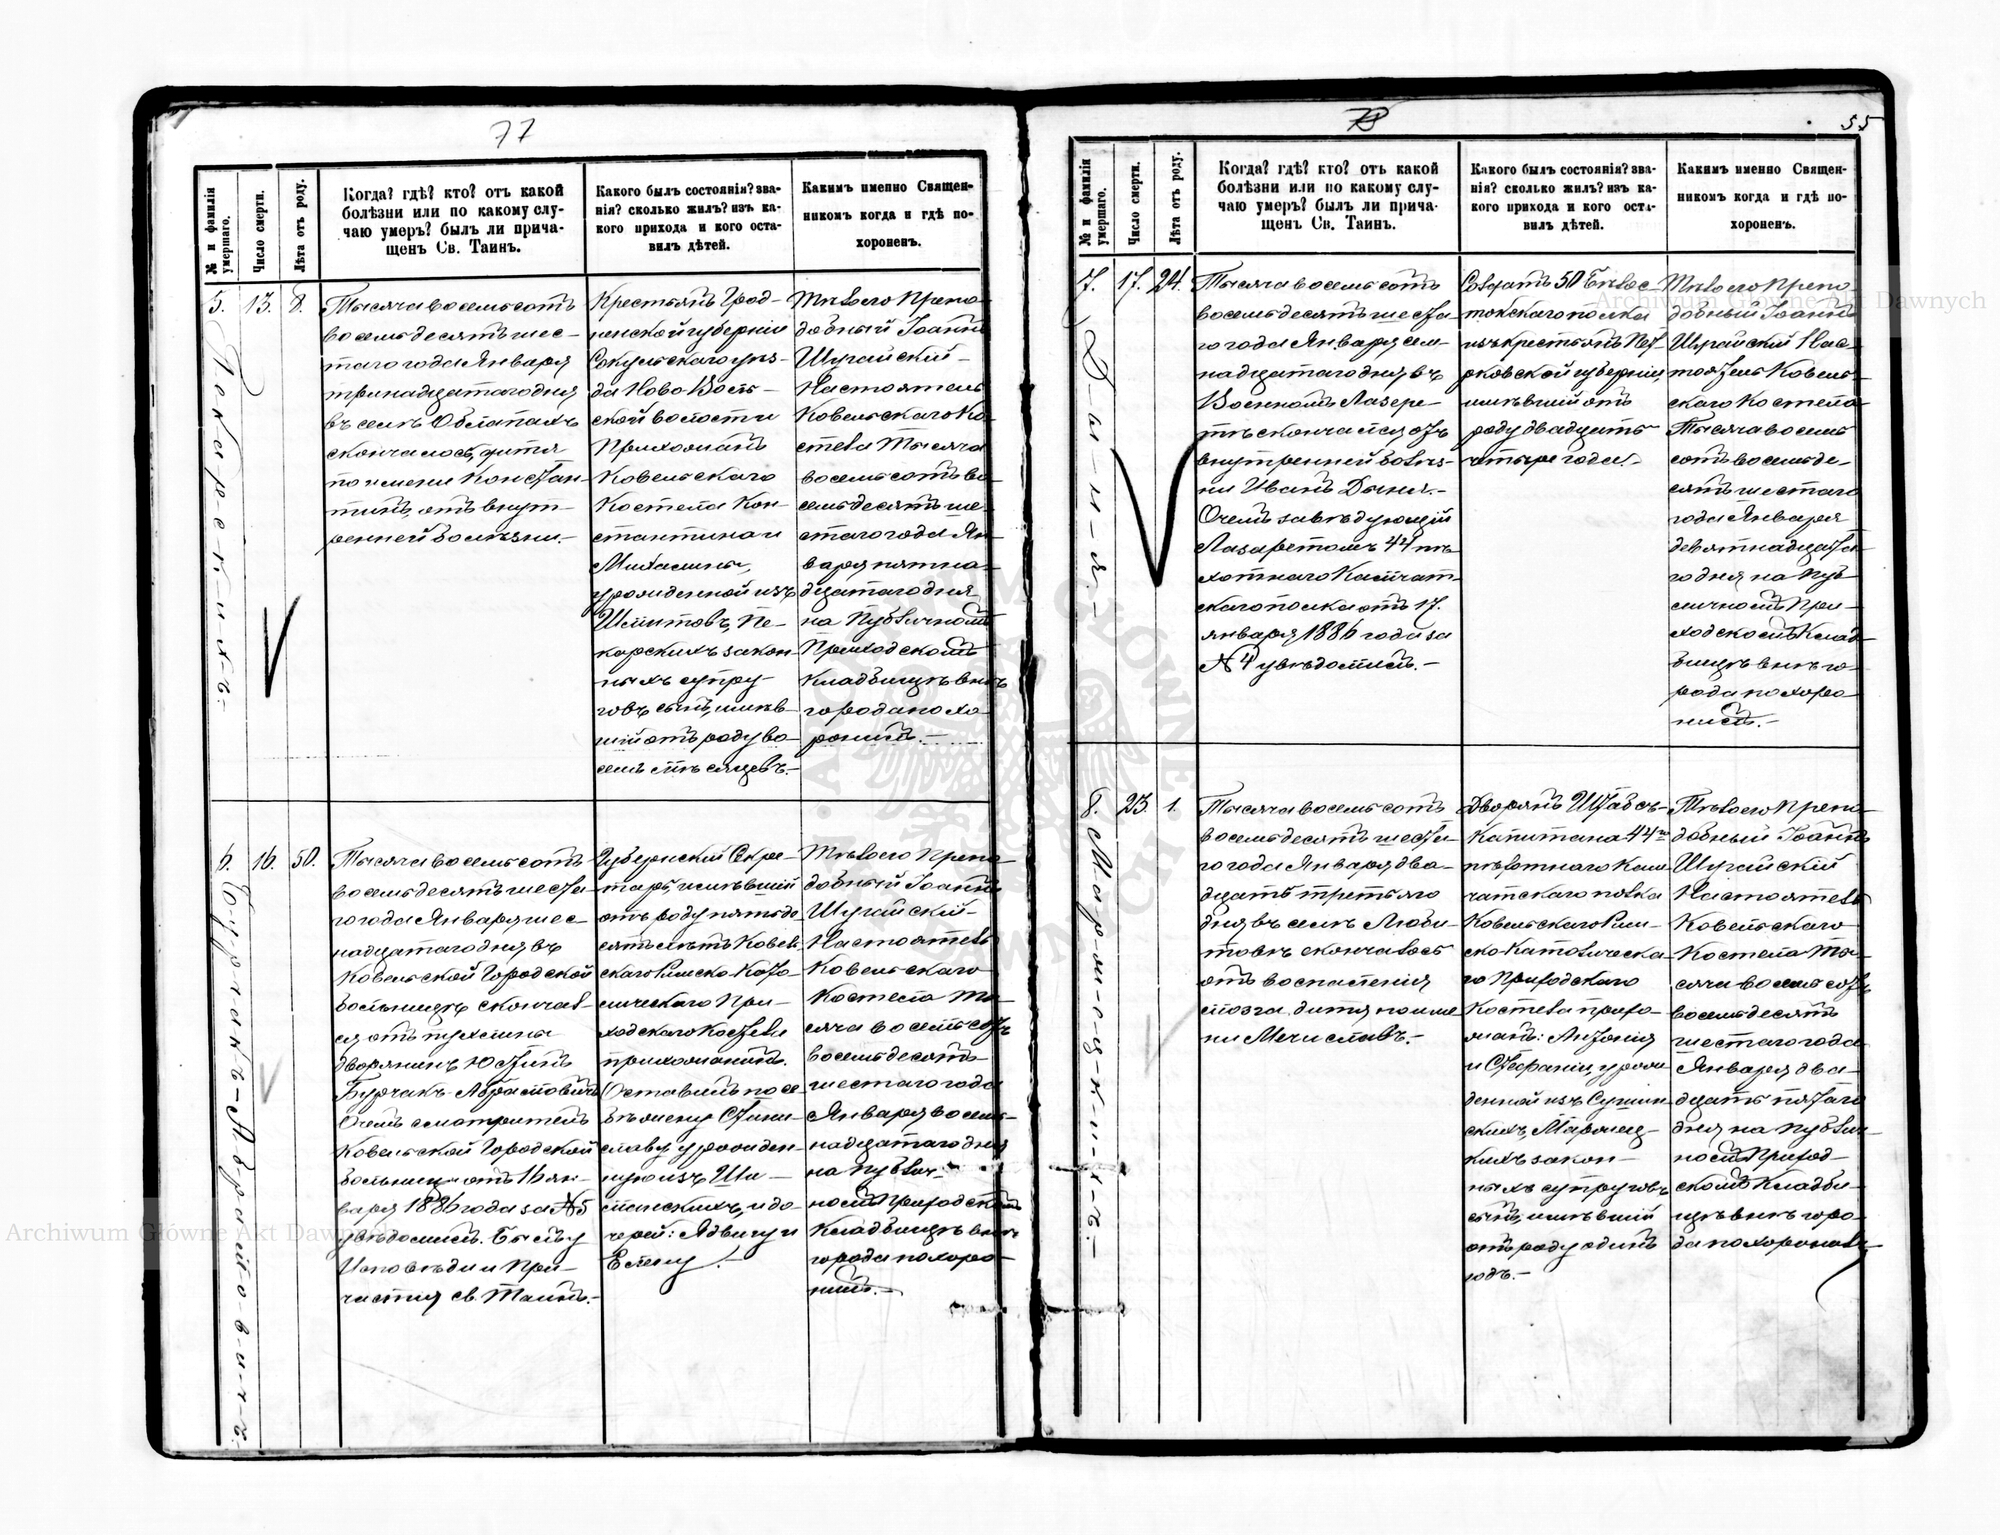 77
№ и фамилія умершаго.
Число смерти.
Лѣта отъ роду.
Когда? гдѣ? кто? отъ какой
болѣзни или по какому слу-
чаю умеръ? былъ ли прича-
щенъ Св. Таинъ.
Какого былъ состоянія? зва-
нія? сколько жилъ? изъ ка-
кого прихода и кого оста-
вилъ дѣтей.
Какимъ именно Священ-
никомъ когда и гдѣ по-
хороненъ.
5.
13.
8.
Тысяча восемьсотъ
восемьдесятъ шес-
таго года Января
тринадцатаго дня
въ селѣ Облапахъ
скончалось дитя
по имени Констан-
тинъ, отъ внут-
ренней болѣзни.-
Крестьянъ Грод-
ненской губерніи
Сокульскаго уѣз-
да Ново Воль-
ской волости
Прихожанъ
Ковельскаго
Костела Кон-
стантина и
Михалины,
урожденной изъ
Шмитовъ, Пе-
карскихъ закон-
ныхъ супру-
говъ сынъ, имѣв-
шій отъ роду во-
семь мѣсяцевъ.-
Тѣло его Препо-
добный Іоаннъ
Шугайскій-
Настоятель
Ковельскаго Ко-
стела Тысяча
восемьсотъ во-
семьдесятъ ше-
стаго года Ян-
варя пятна-
дцатаго дня
на Публичномъ
Приходскомъ
Кладбищѣ внѣ
города похо-
ронилъ.-
6.
16.
50.
Бурчакъ-Абрамовичъ
Тысяча восемьсотъ
восемьдесятъ шеста-
го года Января шес-
надцатаго дня въ
Ковельской Городской
больницѣ скончал-
ся отъ
дворянинъ Юстинъ
Бурчакъ-Абрамовичъ
О чемъ смотритель
Ковельской Городской
больницы отъ 16 ян-
варя 1886 года за № 5
увѣдомилъ. Былъ у
Исповѣди и При-
частія св. Таинъ.-
Губернскій Секре-
тарь, имѣвшій
отъ роду пятьде-
сятъ лѣтъ Ковель-
скаго Римско-Като-
лическаго При-
ходскаго Костела
прихожанинъ.
Оставилъ по се-
бѣ жену Стани-
славу урожден-
ную изъ Ши-
манскихъ, и до-
черей: Ядвигу и
Елену.-
Тѣло его Препо-
добный Іоаннъ
Шугайскій-
Настоятель
Ковельскаго
Костела Ты-
сяча восемьсотъ
восемьдесятъ
шестаго года
Января восем-
надцатаго дня
на Публич-
номъ Приходскомъ
Кладбищѣ внѣ
города похоро-
нилъ.-
78
55
№ и фамилія умершаго.
Число смерти.
Лѣта отъ роду.
Когда? гдѣ? кто? отъ какой
болѣзни или по какому слу-
чаю умеръ? былъ ли прича-
щенъ Св. Таинъ.
Какого былъ состоянія? зва-
нія? сколько жилъ? изъ ка-
кого прихода и кого оста-
вилъ дѣтей.
Какимъ именно Священ-
никомъ когда и гдѣ по-
хороненъ.
7.
17.
24.
Дыня.-
Тысяча восемьсотъ
восемьдесятъ шеста-
го года Января сем-
надцатаго дня въ
Военномъ Лазаре-
тѣ скончался отъ
внутренней болѣз-
ни Иванъ Дыня.-
О чемъ завѣдующій
Лазаретомъ 44 пѣ-
хотнаго Камчат-
скаго полка отъ 17.
января 1886 года за
№ 4 увѣдомилъ.-
Солдатъ 50 Бѣлос-
токскаго полка
изъ крестьянъ Пет-
рковской губерніи,
имѣвшій отъ
роду двадцать
четыре года.-
Тѣло его Препо-
добный Іоаннъ
Шугайскій Нас-
тоятель Ковель-
скаго Костела
Тысяча восемь
сотъ восемьде-
сятъ шестаго
года Января
девятнадцата-
го дня на Пуб-
личномъ При-
ходскомъ Клад-
бищѣ внѣ го-
рода похоро-
нилъ.-
8.
23.
1.
Тысяча восемьсотъ
восемьдесятъ шеста-
го года Января два-
дцать третьяго
дня въ селѣ Люби-
товѣ скончалось
отъ воспаленія
мозга дитя по име-
ни Мечиславъ.-
Дворянъ Штабсъ-
Капитана 44го
пѣхотнаго Кам-
чатскаго полка
Ковельскаго Рим-
ско-Католическа-
го Приходскаго
Костела прихо-
жанъ: Антонія
и Стефаніи, урож-
денной изъ
скихъ,
кихъ закон-
ныхъ супруговъ
сынъ, имѣвшій
отъ роду одинъ
годъ.-
Тѣло его Препо-
добный Іоаннъ
Шугайскій
Настоятель
Ковельскаго
Костела Ты-
сяча восемьсотъ
восемьдесятъ
шестаго года
Января два-
дцать пятаго
дня на Публич-
номъ Приход-
скомъ Кладби-
щѣ внѣ горо-
да похоронилъ.
Archiwum Główne Akt Dawnych
Archiwum Główne Akt Dawnych